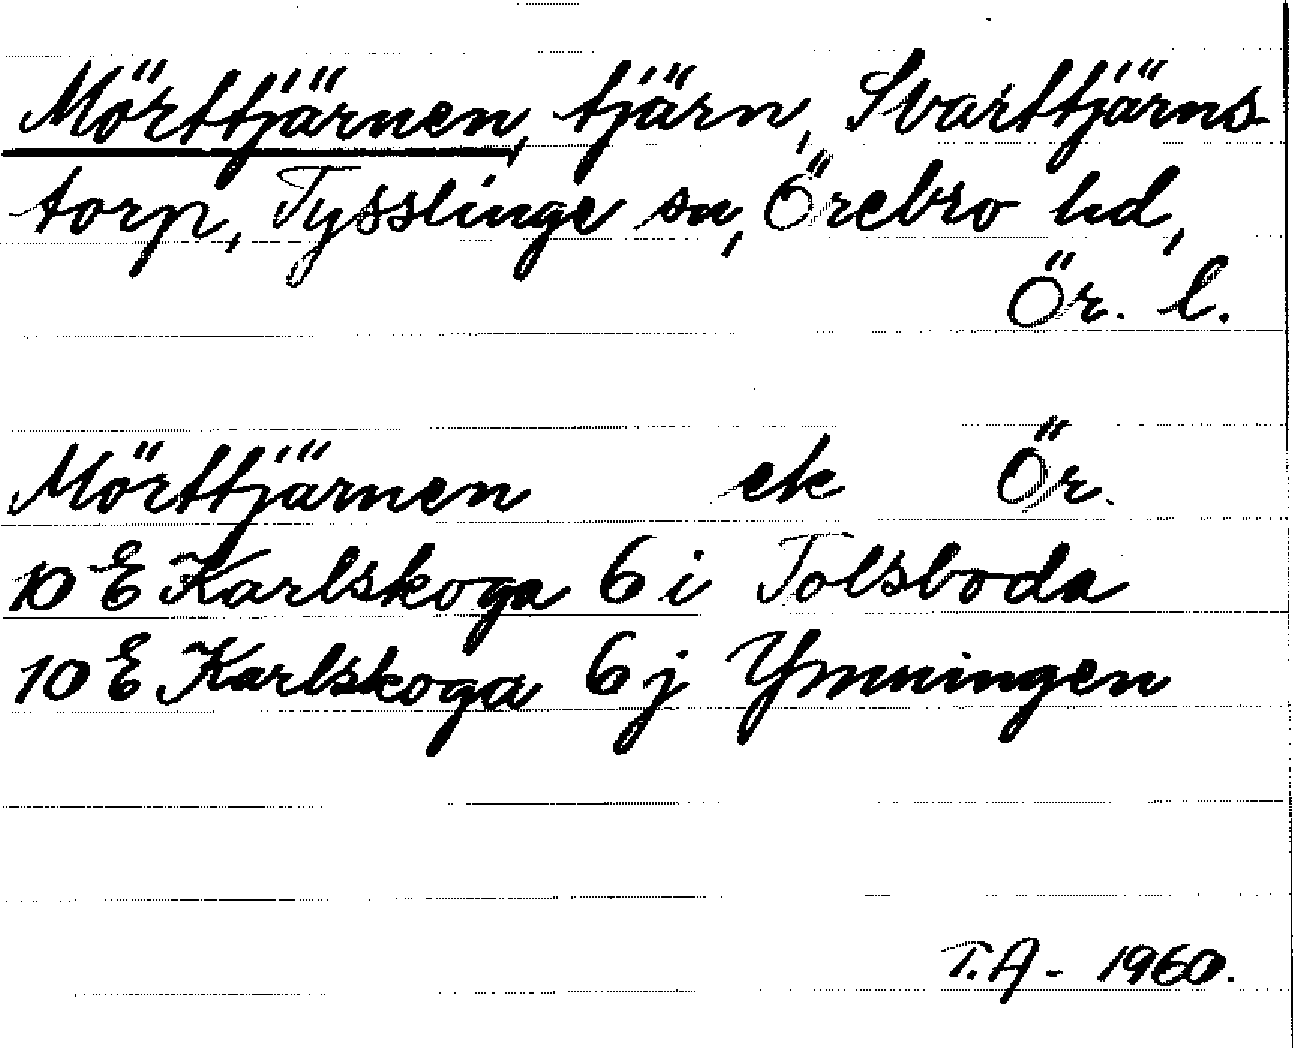 Mörttjärnen, tjärn, Svarttjärns-
torp, Tysslinge sn, Örebro hd,
Ör. l.
Mörttjärnen ek Ör.
10 E Karlskoga 6 i Tolsboda
10 E Karlskoga 6 j Ymningen
T.A - 1960.